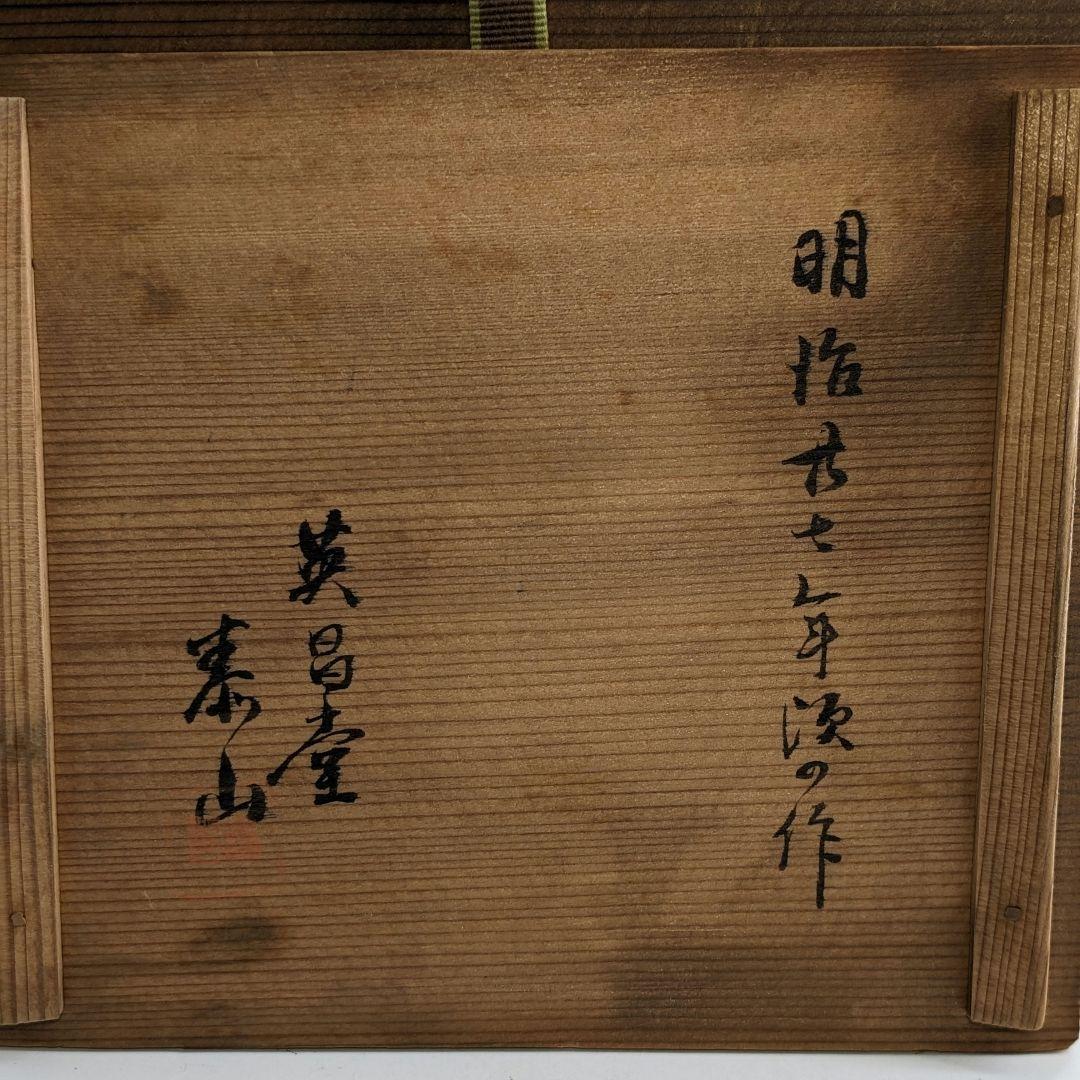 明治廿七年頃の作
英昌堂
泰山